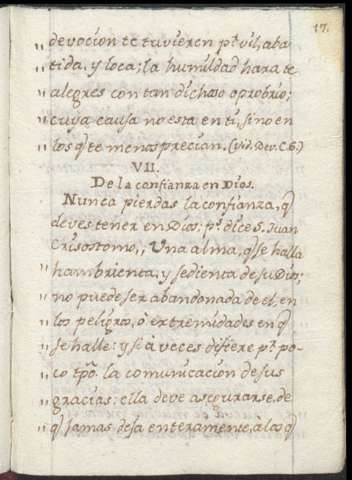 17.
„ devocion te tuvieren pr. vil, aba
„ tida, y loca; la humildad hara te
„ alegres con tan dichoso oprobrio;
„ cuya causa no esta en ti, sino en
„ los q̃ te menosprecian. (Vid. Dev. C. 6.)
VII.
De la confianza en Dios.
Nunca pierdas la confianza, q̃
deves tener en Dios: pr. dice S. Juan
Crisostomo, „ Una alma, q̃ se halla
„ hambrienta, y sedienta de su Dios;
„ no puede ser abandonada de el, en
„ los peligros, ò extremidades en q̃
„ se halle: y si a veces difiere pr. po-
„ co tpõ. la comunicacion de sus
„ gracias: ella deve asegurarse, de
„ q̃ jamas deja enteramente, a los q̃